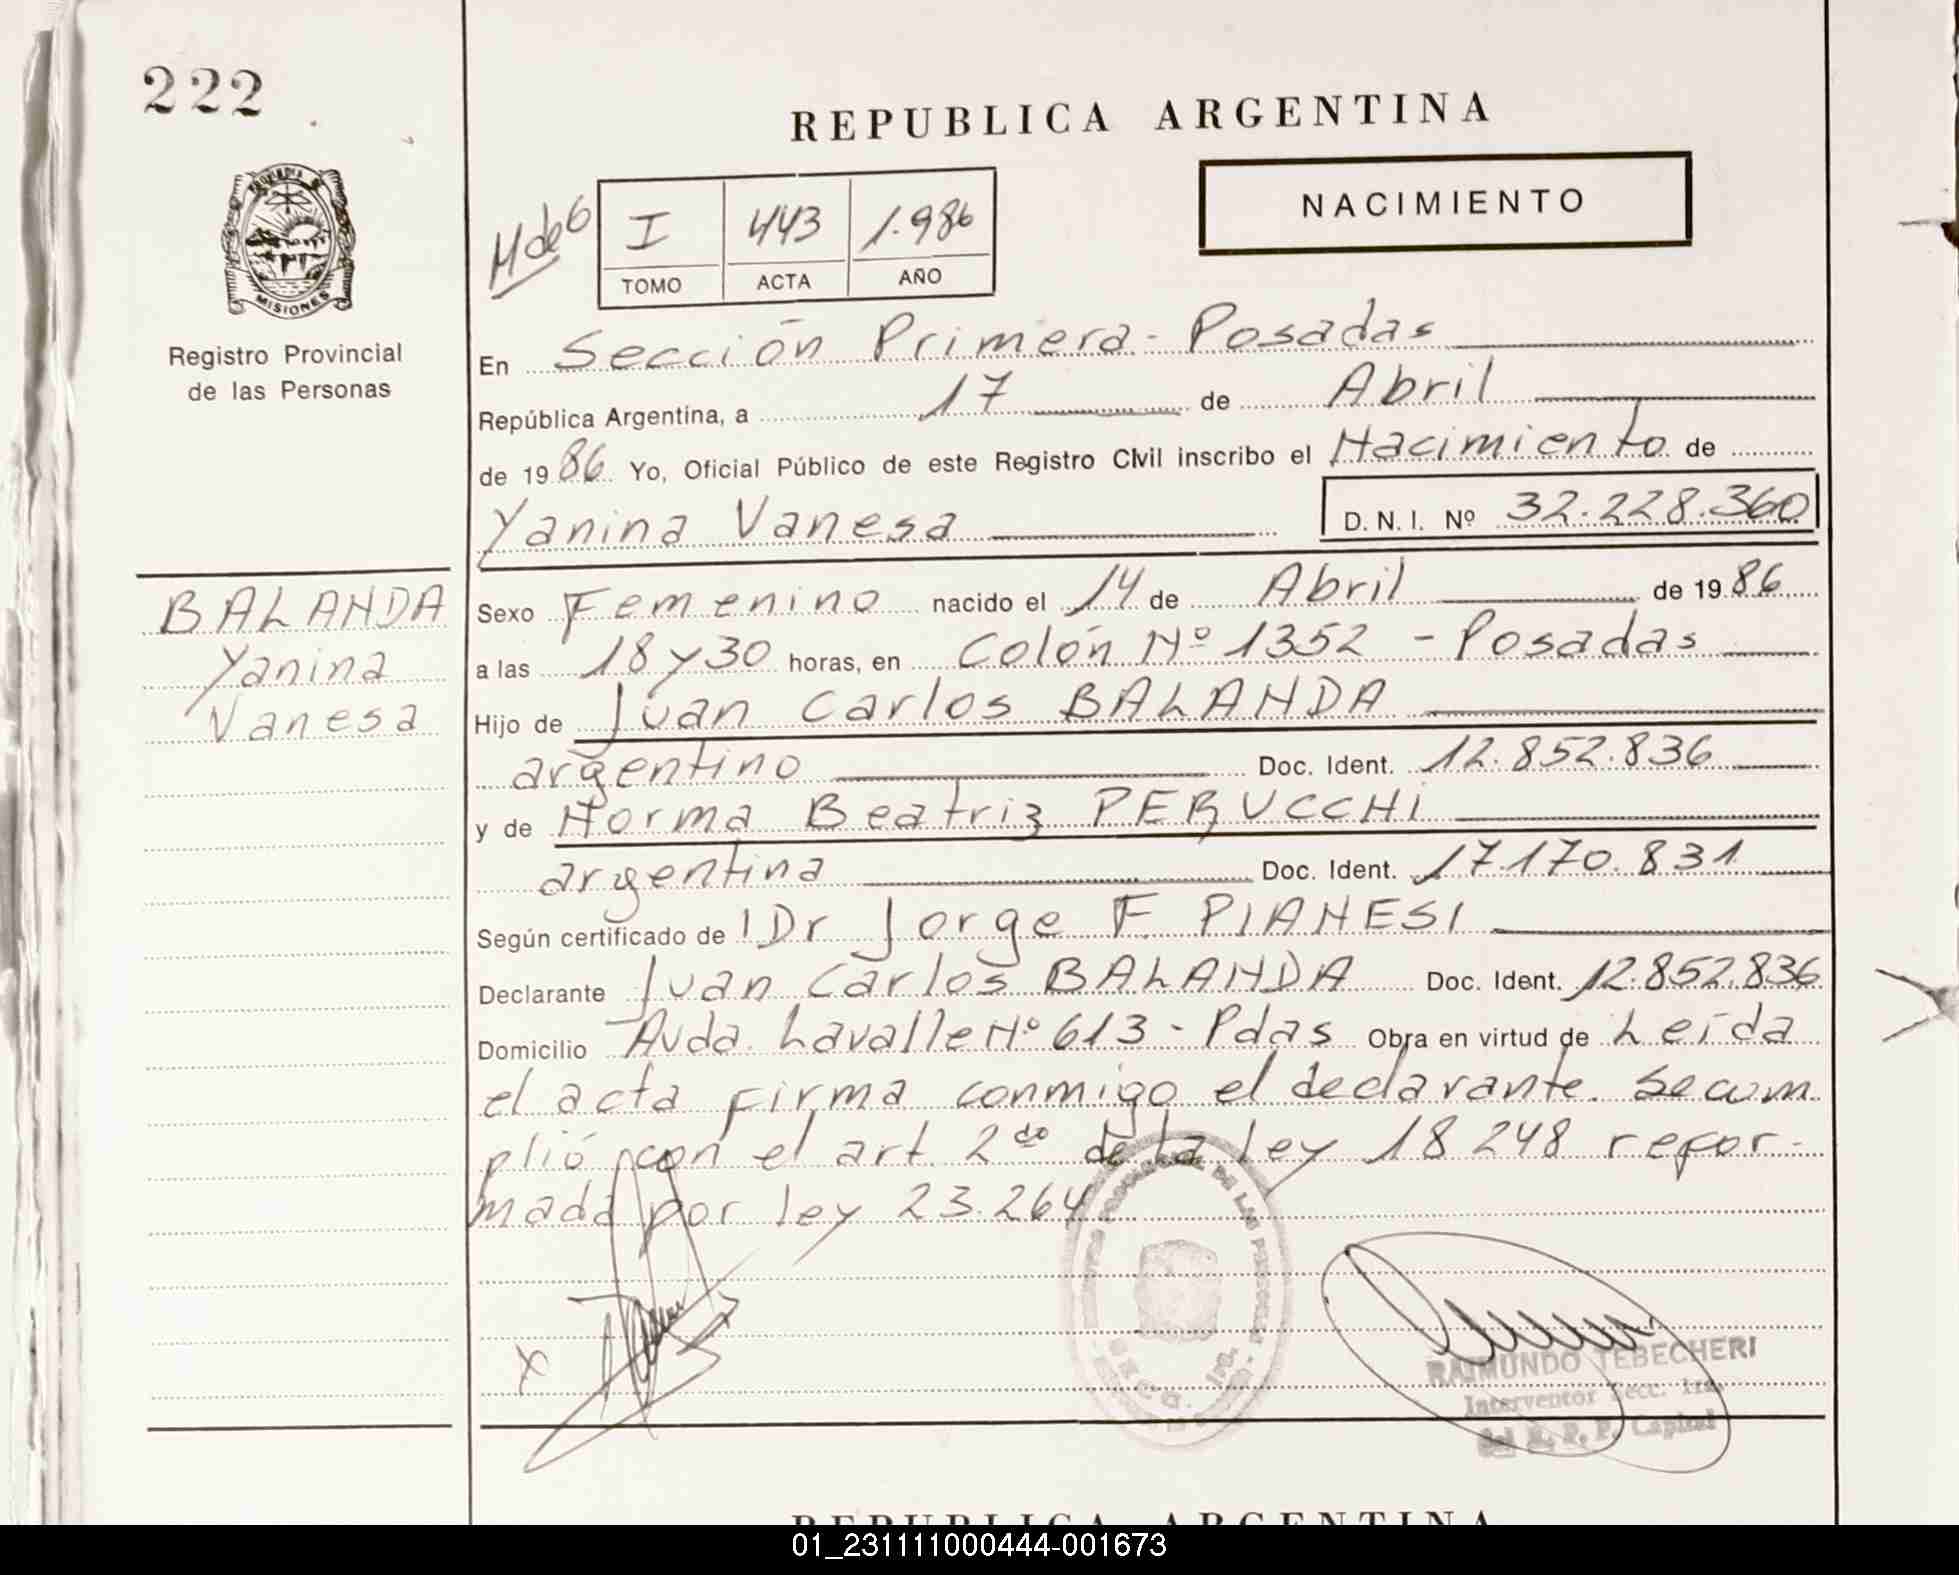 222
REPUBLICA ARGENTINA
NACIMIENTO
M de 6
I 443 1.986
TOMO ACTA AÑO
MISIONES
Registro Provincial
de las Personas
En Sección Primera - Posadas
República Argentina, a 17 de Abril
de 1986 Yo, Oficial Público de este Registro Civil inscribo el Nacimiento de
Yanina Vanesa D. N. I. Nº 32.228.360
BALANDA
Yanina
Vanesa
Sexo Femenino nacido el 14 de Abril de 1986
a las 18 y 30 horas, en Colón Nº 1352 - Posadas
Hijo de Juan Carlos BALANDA
argentino Doc. Ident. 12.852.836
y de Norma Beatriz PERUCCHI
argentina Doc. Ident. 17.170.831
Según certificado de Dr Jorge F. PIANESI
Declarante Juan Carlos BALANDA Doc. Ident. 12.852.836
Domicilio Avda. Lavalle Nº 613 - Pdas Obra en virtud de Leída
el acta firma conmigo el declarante. Se cum
plió con el art. 2do de la ley 18 248 refor-
mada por ley 23.264
X
RAIMUNDO TEBECHERI
Interventor Secc. 1ra.
del R. P. P. Capital
REPUBLICA ARGENTINA
01_231111000444-001673